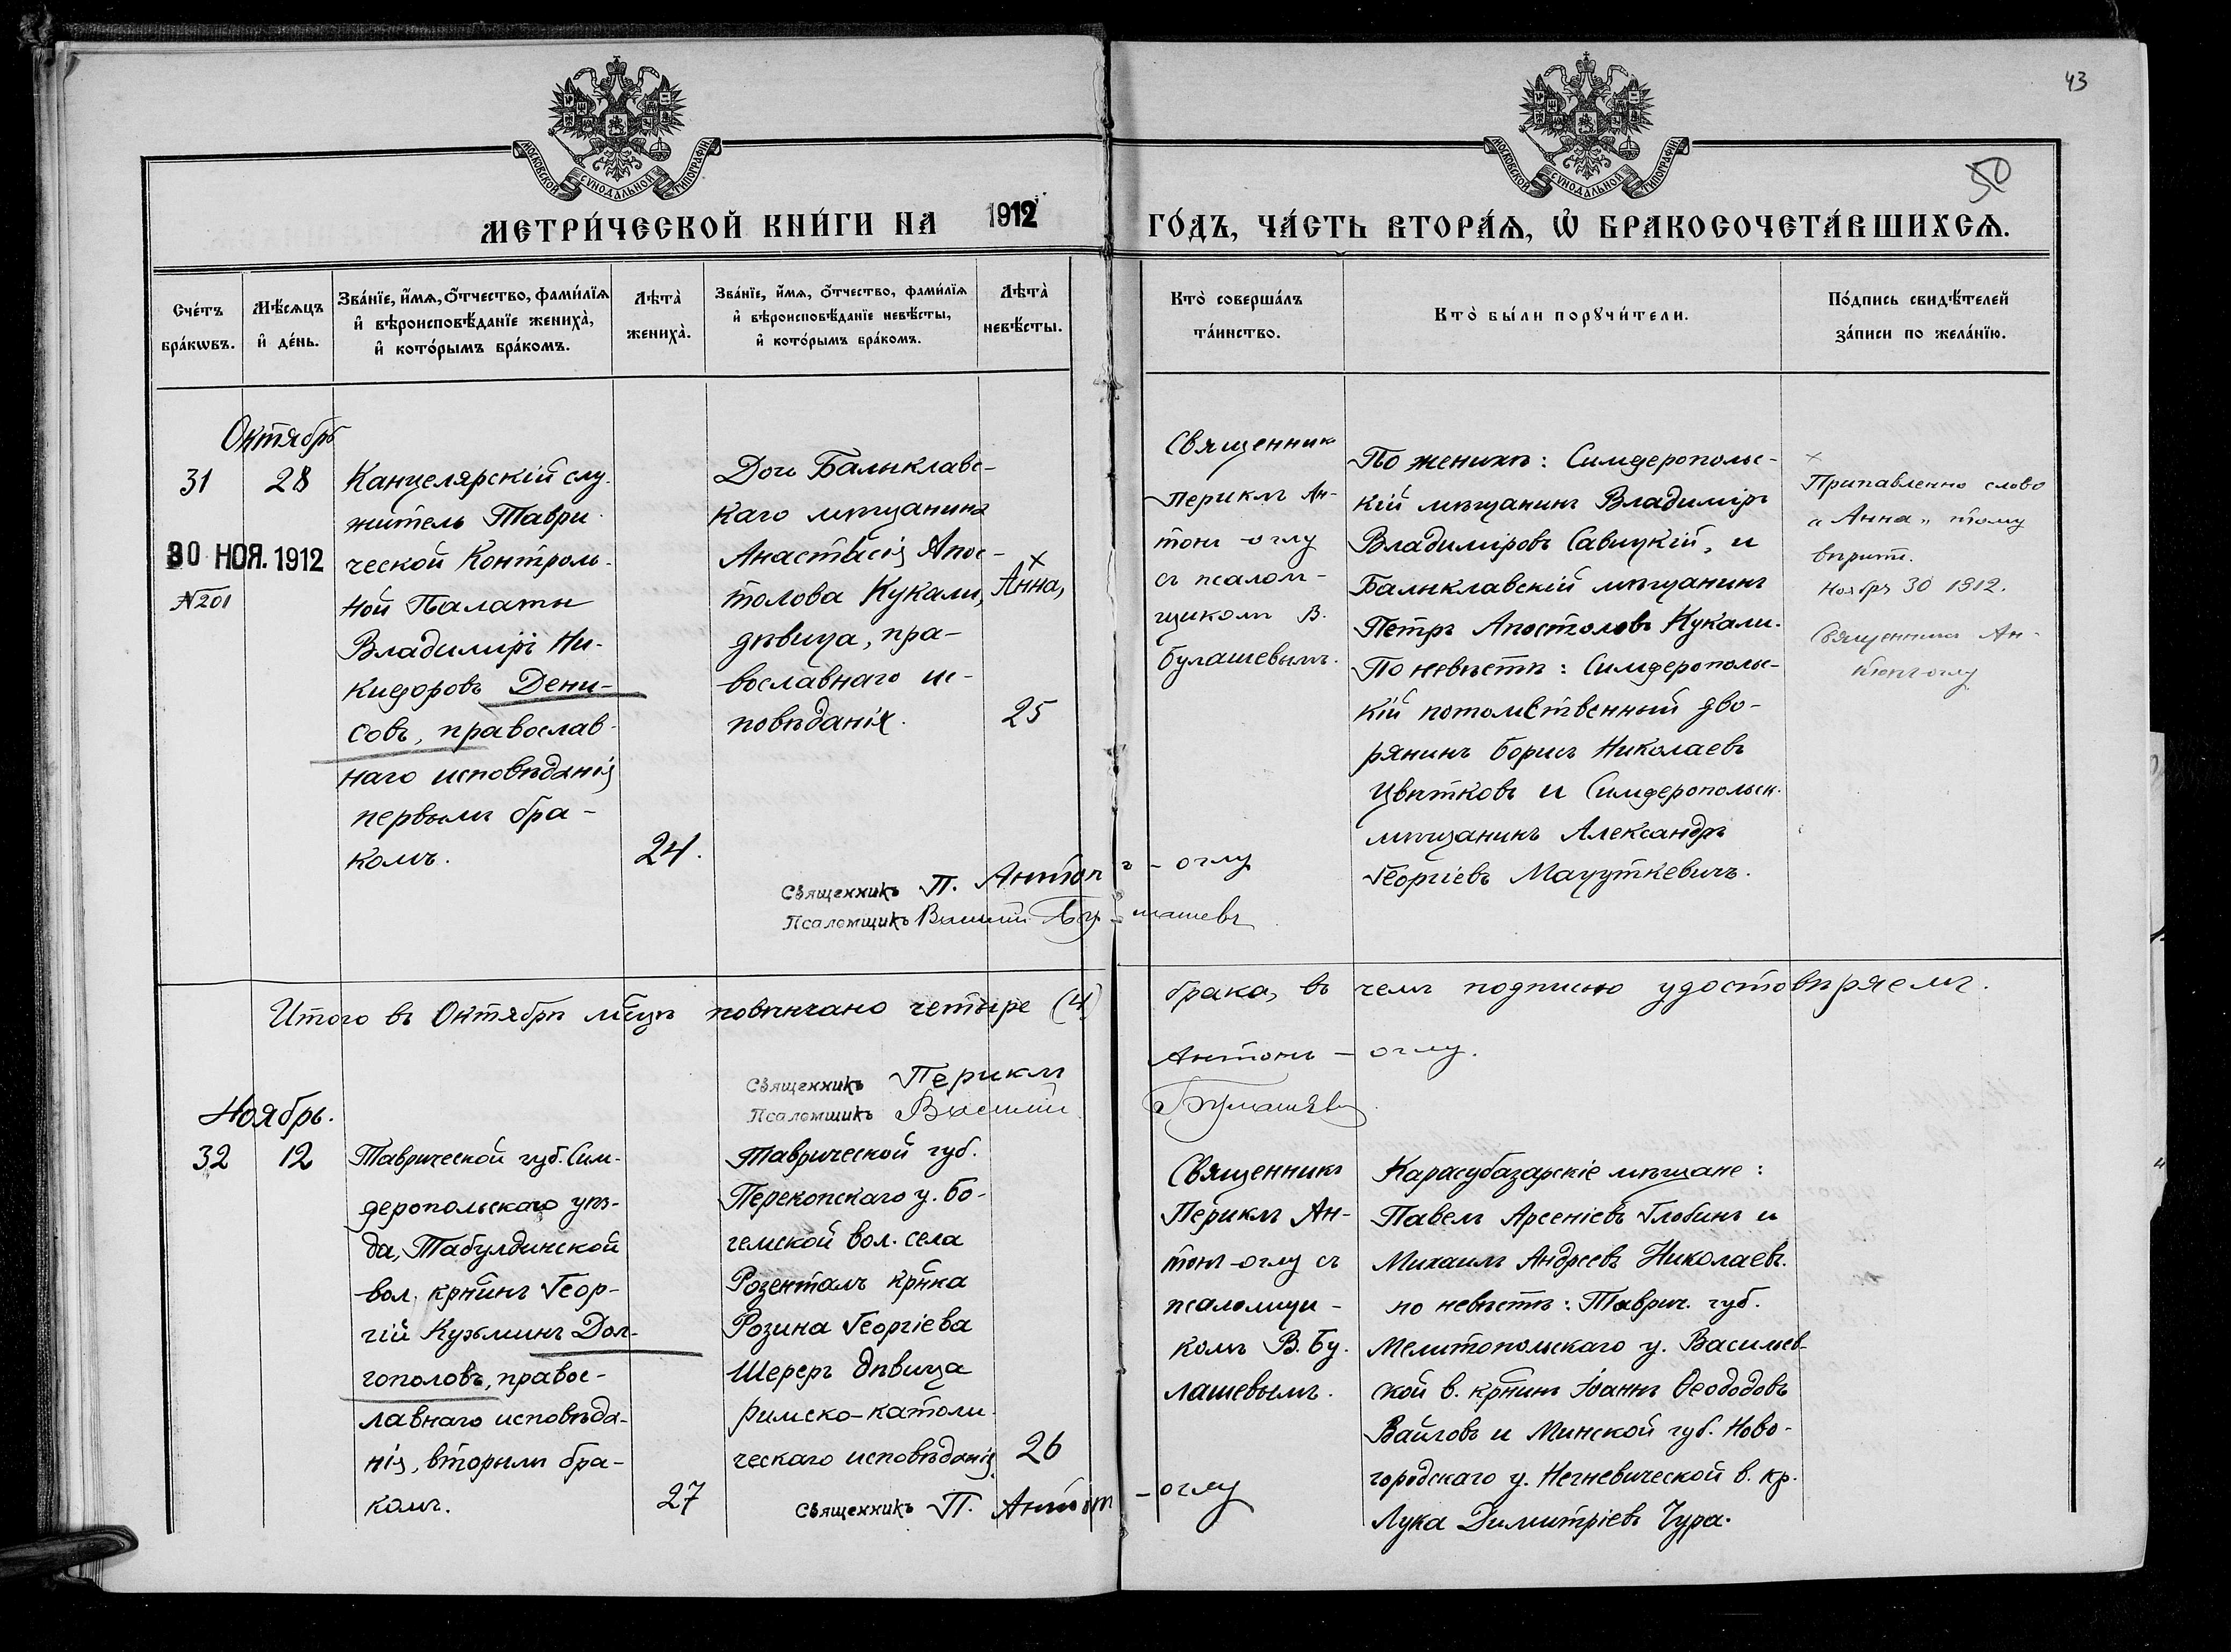 43
50
МОСКОВСКОЙ СѴНОДАЛЬНОЙ ТИПОГРАФІИ
МОСКОВСКОЙ СѴНОДАЛЬНОЙ ТИПОГРАФІИ
МЕТРИ́ЧЕСКОЙ КНИ́ГИ НА 1912 ГО́ДЪ, ЧА́СТЬ ВТОРА́Ѧ, Ѽ БРАКОСОЧЕТА́ВШИХСѦ.
Сче́тъ
бра́кѡвъ.
Мѣ́сѧцъ
и҆ де́нь.
Зва́нїе, и҆́мѧ, ѻ҆́тчество, фами́лїѧ
и҆ вѣроисповѣ́данїе жениха̀,
и҆ кото́рымъ бра́комъ.
Лѣта̀
жениха̀.
Зва́нїе, и҆́мѧ, ѻ҆́тчество, фами́лїѧ
и҆ вѣроисповѣ́данїе невѣ́сты,
и҆ кото́рымъ бра́комъ.
Лѣта̀
невѣ́сты.
Кто̀ соверша́лъ
та́инство.
Кто̀ бы́ли порꙋчи́тели.
По́дпись свидѣ́телей
за́писи по жела́нїю.
Октябрь
31
28
30 НОЯ. 1912
№ 201
Канцелярскій слу-
житель Таври-
ческой Контроль-
ной Палаты
Владиміръ Ни-
кифоровъ Дени-
совъ, православ-
наго исповѣданія
первымъ бра-
комъ.
24.
Дочь Балыклавс-
каго мѣщанина
Анастасія Апос-
толова Кукали,
дѣвица, пра-
вославнаго ис-
повѣданія.
× Анна,
25
Священникъ
Периклъ Ан-
тонъ-оглу
съ псалом-
щикомъ В.
Булашевымъ.
По женихѣ: Симферопольс-
кій мѣщанинъ Владиміръ
Владиміровъ Савицкій, и
Балыклавскій мѣщанинъ
Петръ Апостоловъ Кукали.
По невѣстѣ: Симферополь-
кій потомственный дво-
рянинъ Борисъ Николаевъ
Цвѣтковъ и Симферопольск.
мѣщанинъ Александръ
Георгіевъ Мацуткевичъ.
×
Приπавленно слово
„Анна„ тому
вѣрить.
Ноябрь 30 1912.
Священникъ Ан-
тонъ-оглу
Священникъ П. Антонъ-оглу
Псаломщикъ Василій Булашевъ
Итого въ Октябрѣ мѣцѣ повѣнчано четыре (4) брака, въ чемъ подписью удостовѣряемъ.
Священникъ Периклъ Антонъ-оглу.
Псаломщикъ Василій Булашевъ
Ноябрь.
32
12
Таврической губ. Сим-
феропольскаго уѣз-
да, Табулдинской
вол. крнинъ Геор-
гій Кузьминъ Дол-
гополовъ, правос-
лавнаго исповѣда-
нія, вторымъ бра-
комъ.
27
Таврической губ.
Перекопскаго у. Бо-
гемской вол. села
Розенталь крнка
Розина Георгіева
Шереръ дѣвица
римско-католи-
ческаго исповѣданія.
26
Священникъ
Периклъ Ан-
тонъ-оглу съ
псаломщи-
комъ В. Бу-
лашевымъ.
Карасубазарскіе мѣщане:
Павелъ Арсеніевъ Глобинъ и
Михаилъ Андреевъ Николаевъ.
по невѣстѣ: Таврич. губ.
Мелитопольскаго у. Васильев-
ской в. крнинъ Іоаннъ Ѳеододовъ
Вайговъ и Минской губ. Ново-
городскаго у. Негневической в. кр.
Лука Димитріевъ Чура.
Священникъ П. Антонъ-оглу